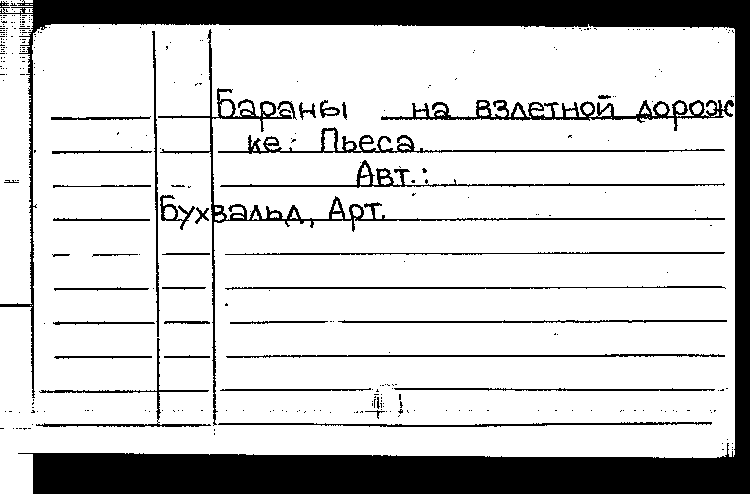 Бараны на взлетной дорож
ке: Пьеса.
Авт.:
Бухвальд, Арт.